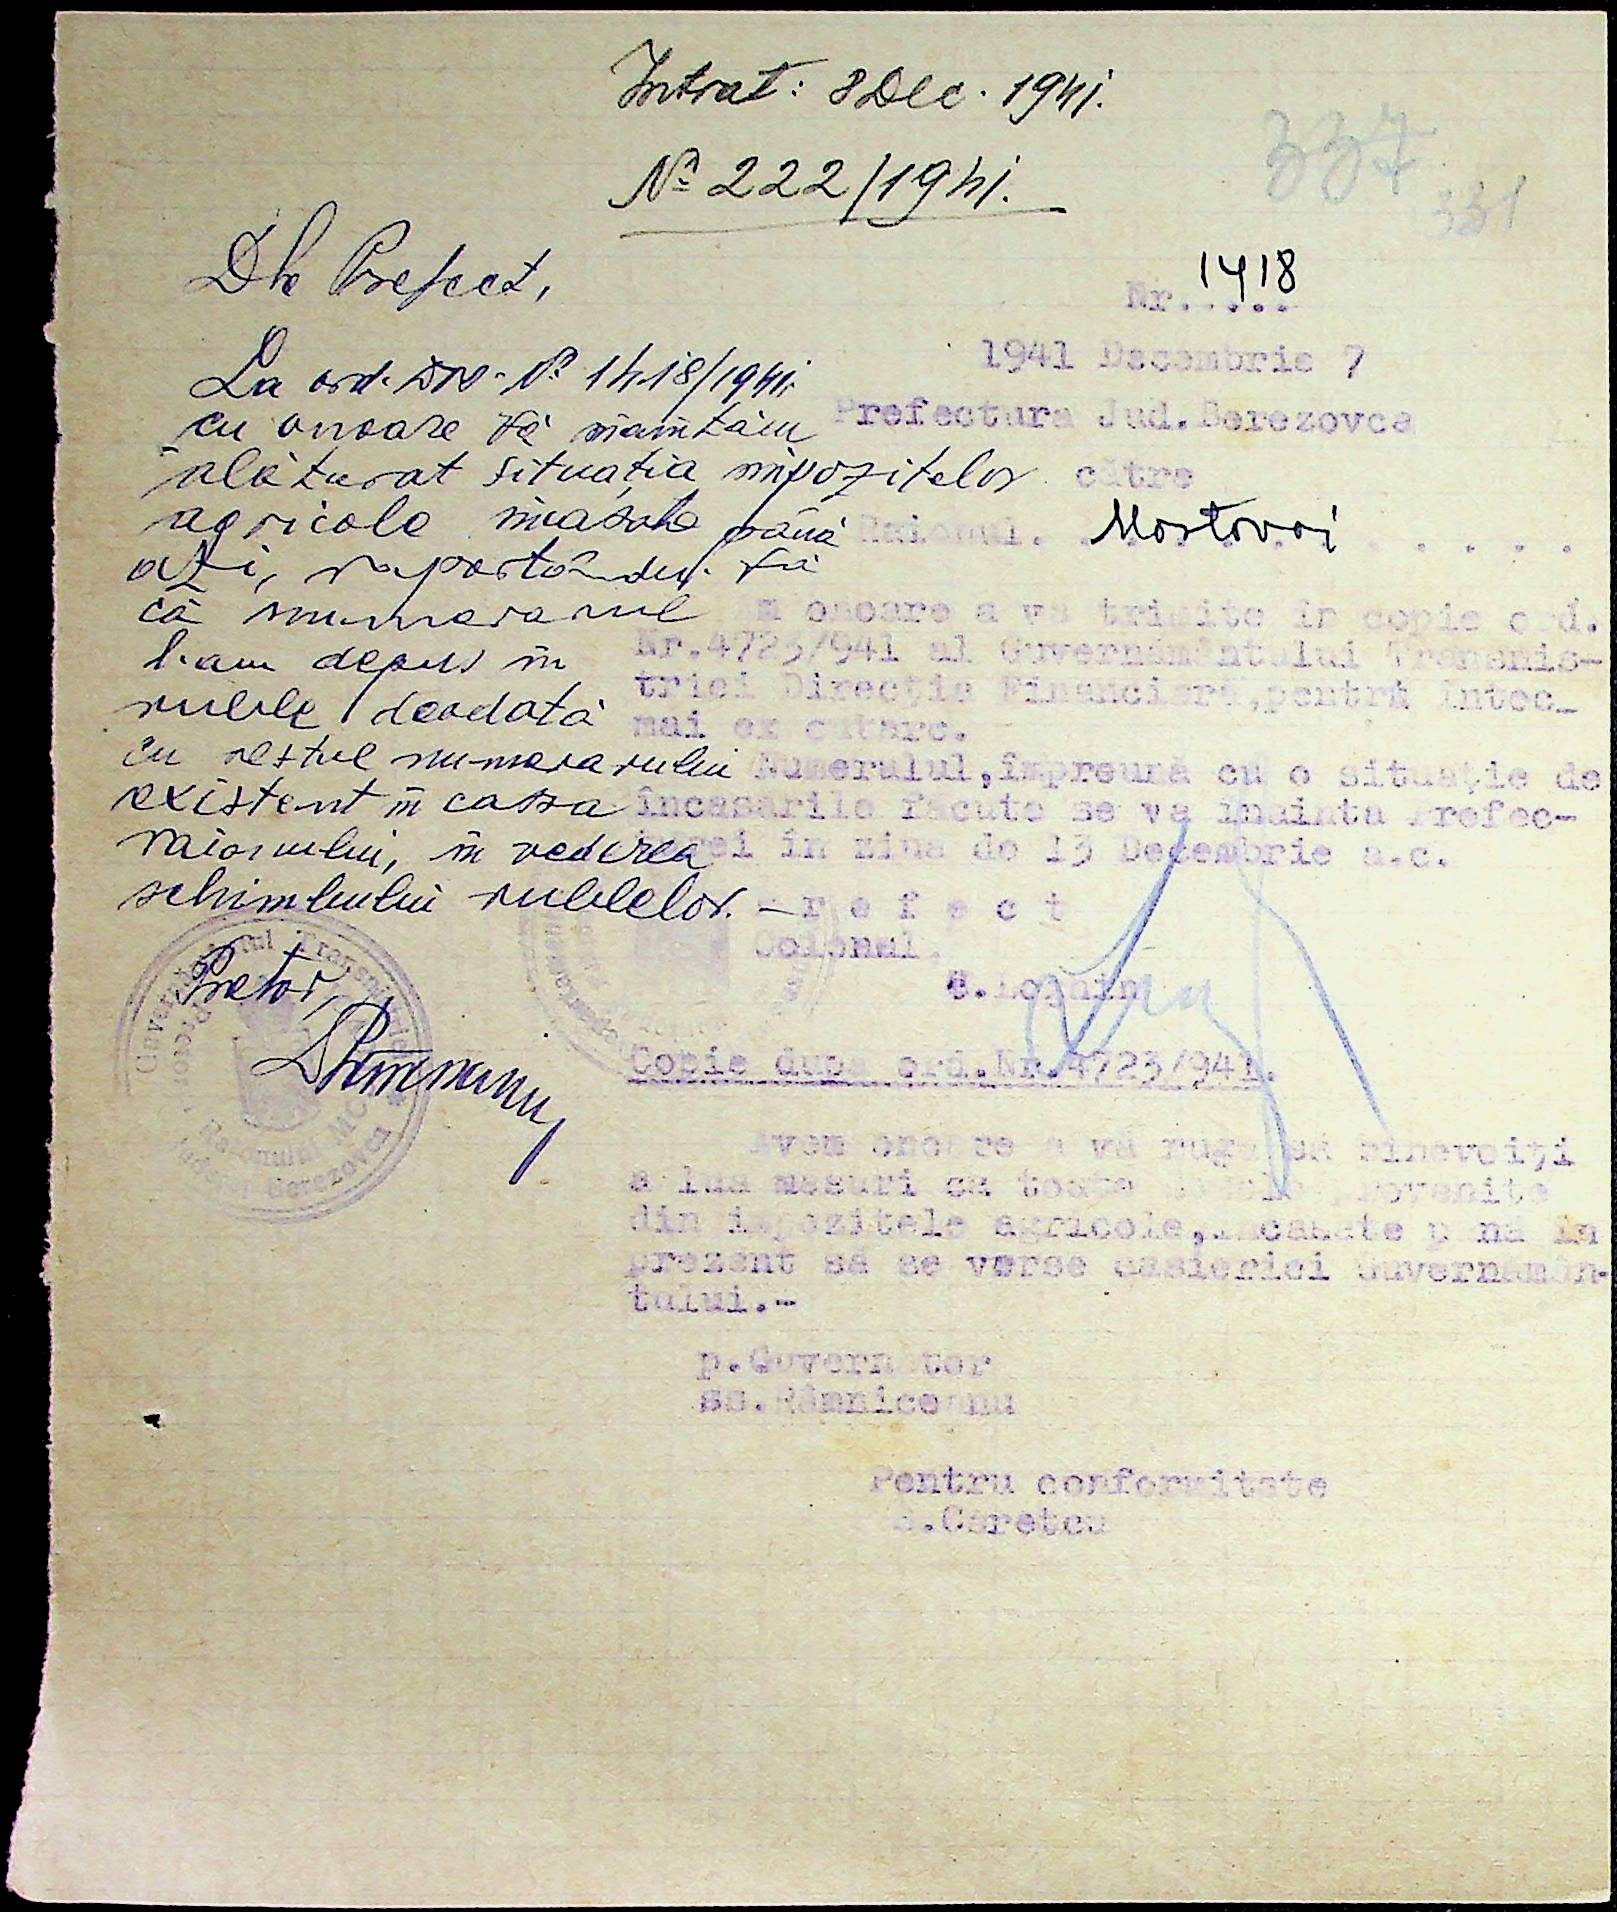 Intrat: 8 Dec. 1941.
№ 222/1941.
337
331
Dle Prefect,
La ord. Dv. № 1418/1941.
cu onoare vă înaintăm
alăturat situația impozitelor
agricole încasate până
azi, raportându-vă
că numerarul
l-am depus în
ruble deodată
cu restul numerarului
existent în cassa
raionului, în vederea
schimbului rublelor. -
Pretor,
Guvernământul Transnistriei
Pretor
Raionului
Județul Berezovca
Nr. 1418
1941 Decembrie 7
Prefectura Jud. Berezovca
către
Raionul. Mostovoi
onoare a vă trimite în copie ord.
Nr.4723/941 al Guvernământului Transnis-
triei Direcția Financiară, pentru întoc_
mai ex cutare.
Numeralul, împreună cu o situație de
încasările făcute se va înainta Prefec-
turei în ziua de 13 Decembrie a.c.
P r e f e c t
Colonel.
Copie dupa ord.Nr.4723/941.
Avem onoare a vă ruga să binevoiți
a lua masuri ca toate provenite
din impozitele agricole, încasate până în
prezent să se verse casieriei Guvernămân-
tului.-
p.Guvernator
ss.Râmniceanu
Pentru conformitate